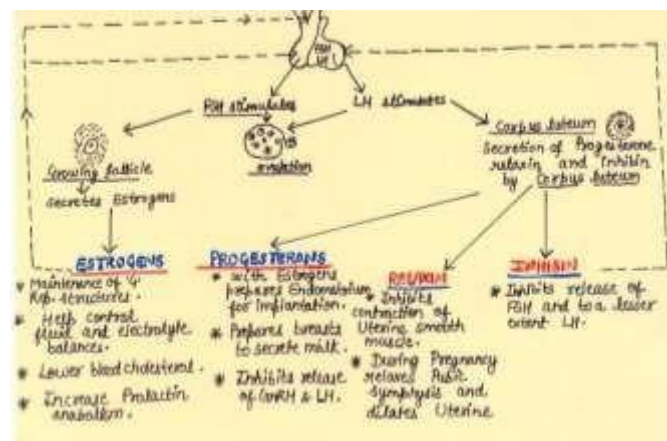 FSH
LH
FSH stimulates
LH stimulates
ovulation
Growing follicle
secretes Estrogens
Corpus luteum
Secretion of Progesterone
relaxin and Inhibin
by Corpus luteum
ESTROGENS
* Maintenance of '♀'
Rep. structures.
* Help control
fluid and electrolyte
balances.
* Lower blood cholesterol.
* Increase Prolactin
anabolism.
PROGESTERANS
* with Estrogens
prepares Endometrium
for implantation.
* Prepares breasts
to secrete milk.
* Inhibits release
of GnRH & LH.
RELAXIN
* Inhibits
contraction of
Uterine smooth
muscle.
* During Pregnancy
relaxes Pubic
symphysis and
dilates Uterine
INHIBIN
* Inhibits release of
FSH and to a lesser
extent LH.